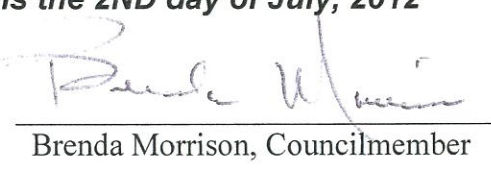 is the 2ND day of July, 2012
Brenda Morrison
Brenda Morrison, Councilmember